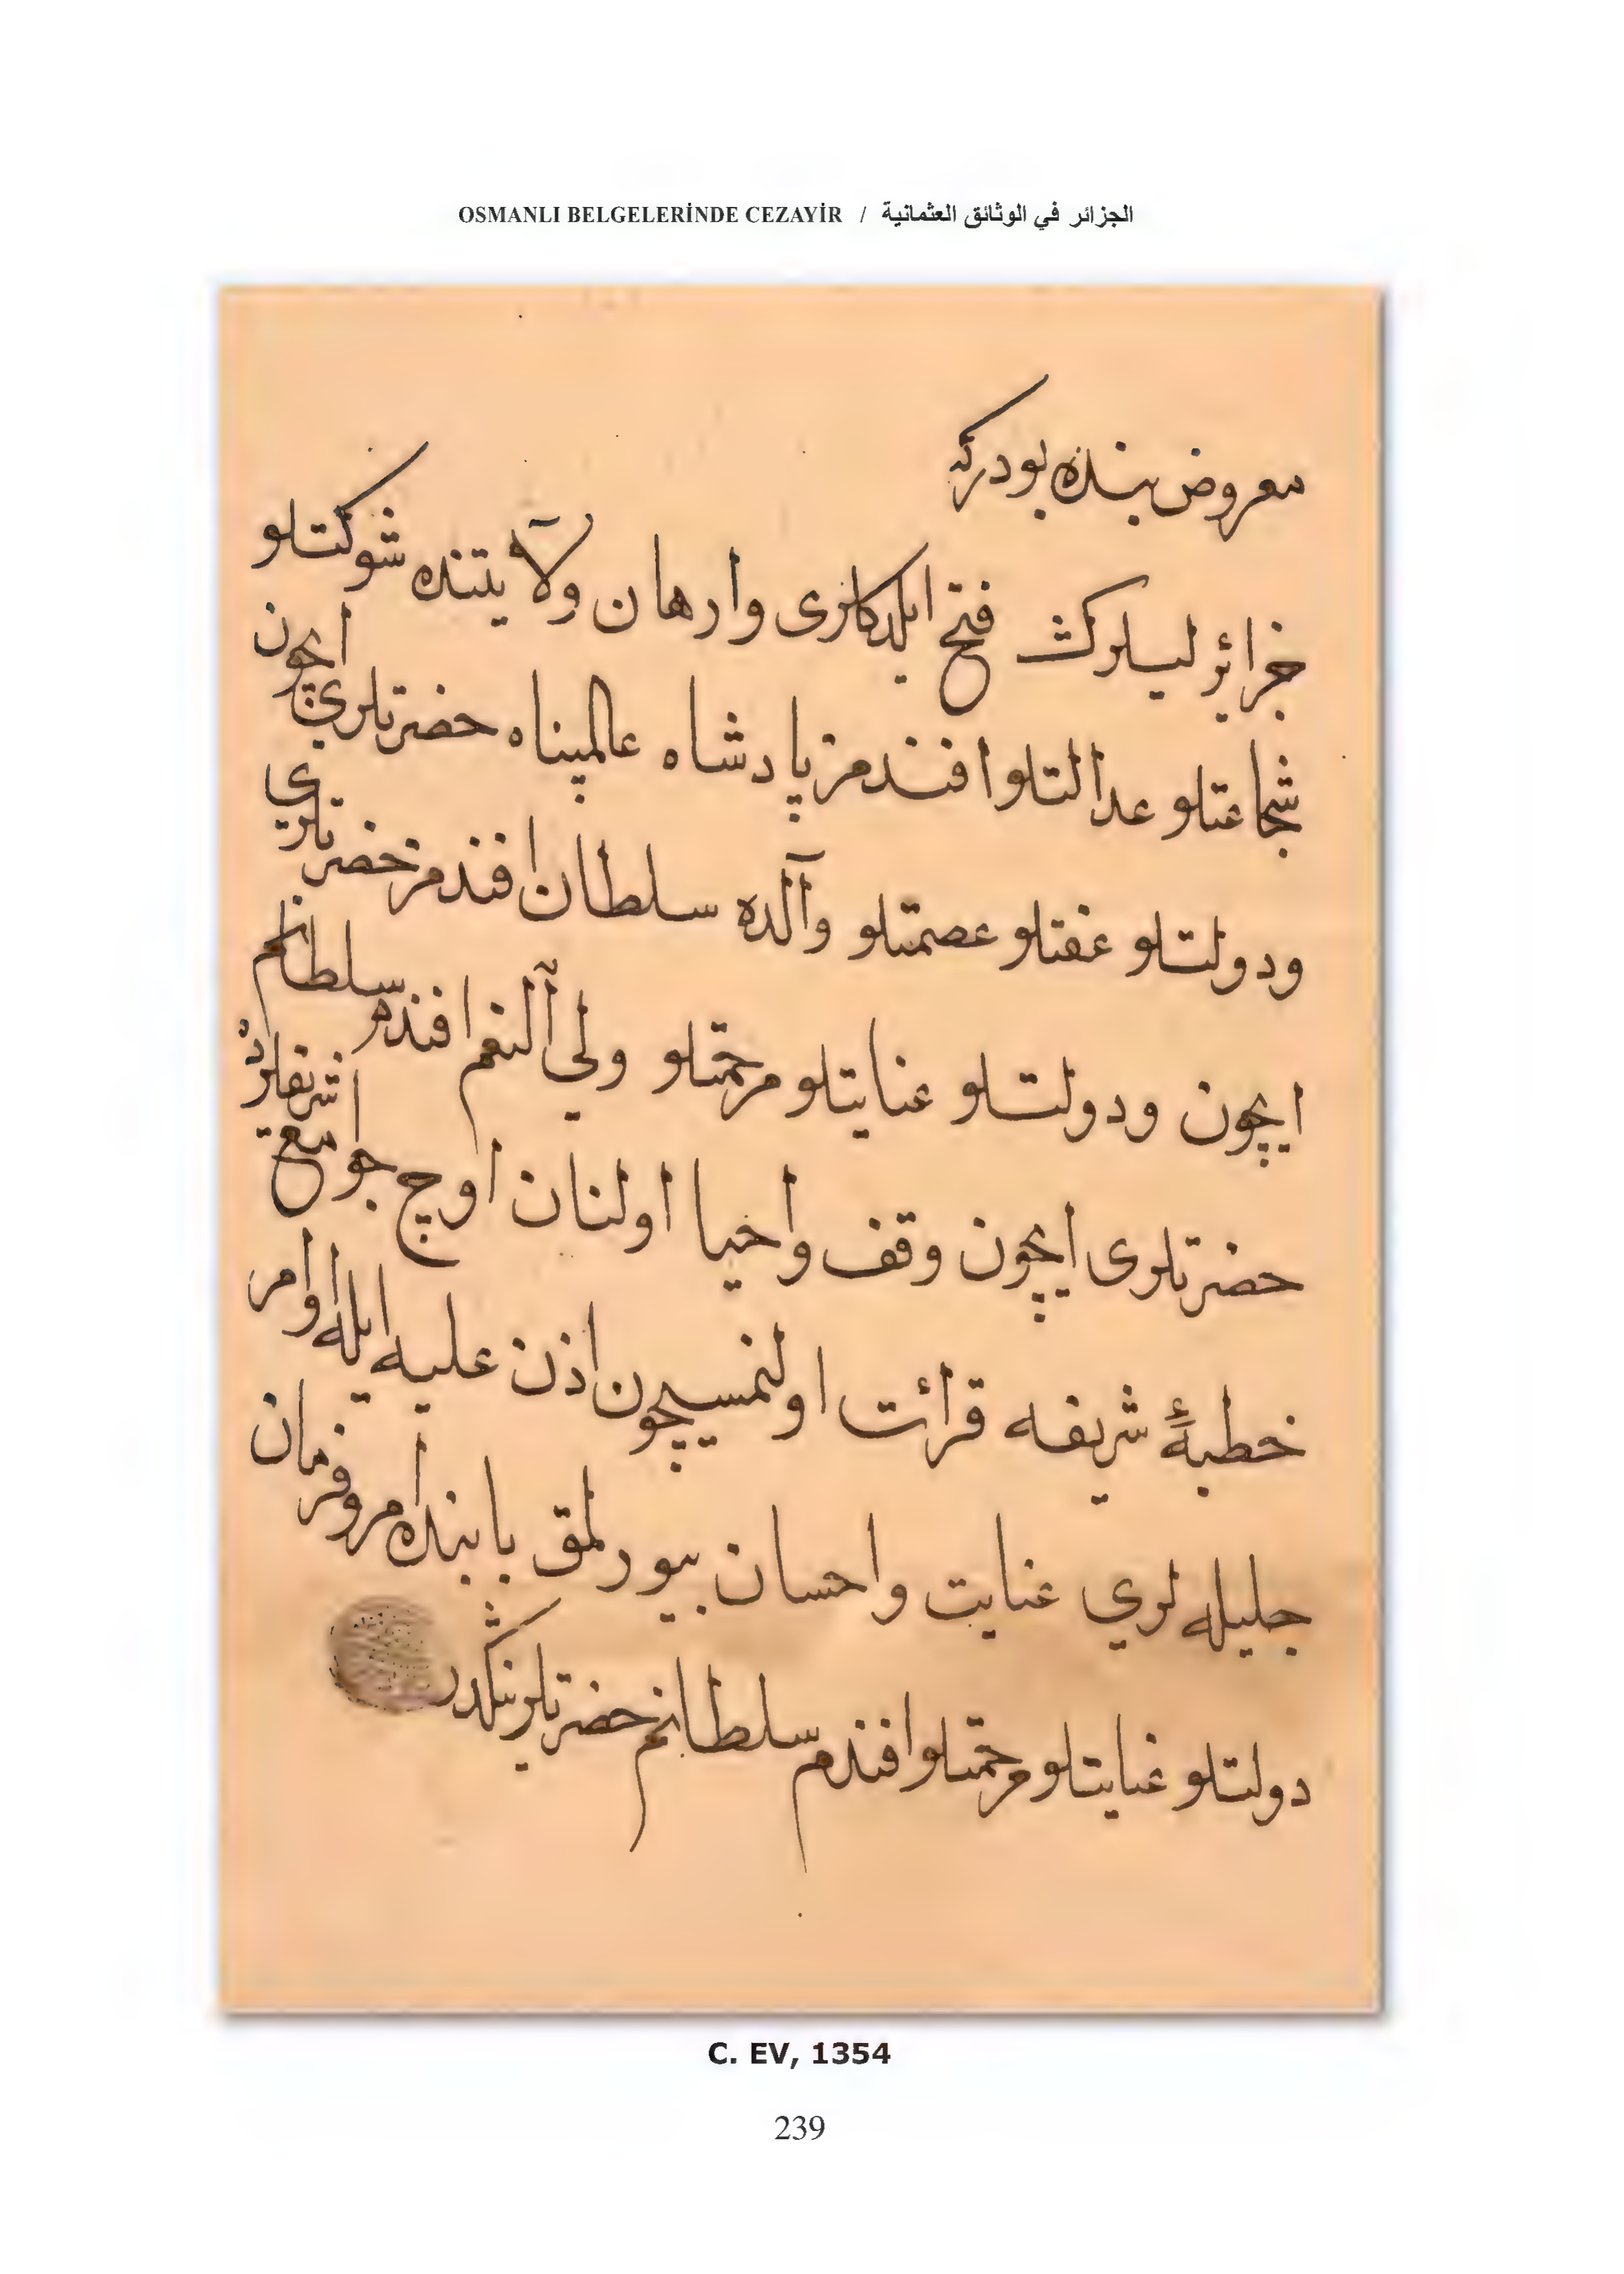 OSMANLI BELGELERİNDE CEZAYİR / الجزائر في الوثائق العثمانية
معروض بنده بودركه
جزائر ليلرك فتح ايلدكلرى وارهان ولايتنده شوكتلو
شجاعتلو عدالتلو افندمز پادشاه عالمپناه حضرتلري ايچون
ودولتلو عفتلو عصمتلو والده سلطان افندمز حضرتلري
ايچون ودولتلو عنايتلو مرحمتلو ولي النعم افندم سلطانم
حضرتلرى ايچون وقف واحيا اولنان اوچ جوامع
خطبهٔ شريفه قرائت اولنمسيچون اذن عليه ايله اوامر
جليله لري عنايت واحسان بيورلمق بابنده امر وفرمان
دولتلو عنايتلو مرحمتلو افندم سلطانم حضرتلرينكدر
C. EV, 1354
239